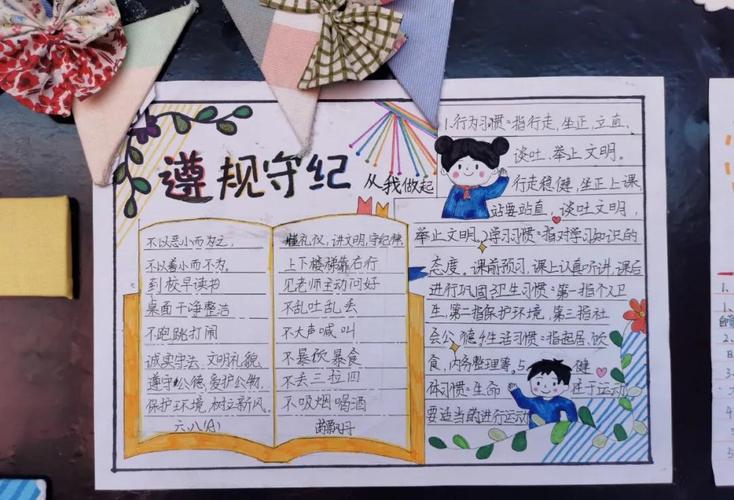 遵规守纪
从我做起
不以恶小而为之,
不以善小而不为。
到校早读书
桌面干净整洁
不跑跳打闹
诚实守法、文明礼貌、
遵守公德、爱护公物、
保护环境、树立新风。
六、八(A)
懂礼仪,讲文明,守纪律
上下楼梯靠右行
见老师主动问好
不乱吐乱丢
不大声喊叫
不暴饮暴食
不丢三拉四
不吸烟喝酒
1.行为习惯:指行走,坐正,立直、
谈吐,举止文明。
行走稳健,坐正上课
站要站直。谈吐文明,
举止文明。2学习习惯:指对学习知识的
态度。课前预习,课上认真听讲,课后
进行巩固。3卫生习惯:第一指个人卫
生,第二指保护环境,第三指社
会公德。4生活习惯:指起居,饮
食,内务整理等。5 健
体习惯:生命 在于运动
要适当的进行运动
1、
1、
2、